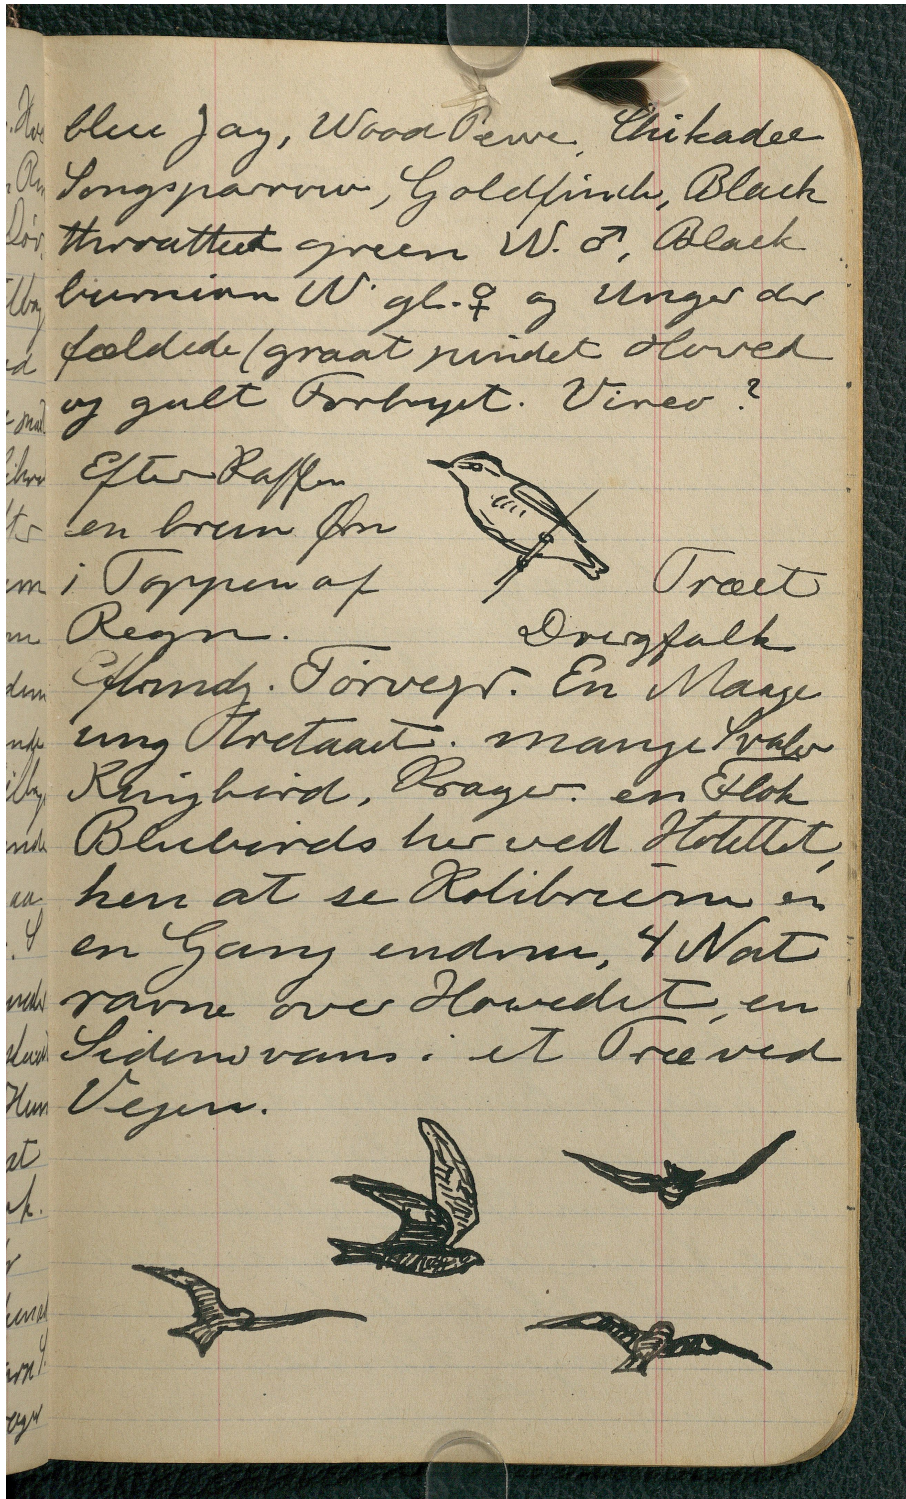 blue Jay, Wood Pewe, Chikadee
Songsparrow, Goldfinch, Black
throatted green W. ♂, Black
burnian W. gl. ♀ og Unger der
fældede (graat pudset Hoved
og gult Forbryst. Vireo ?
Efter Kaffen
en brun Ørn
i Toppen af
Regn.
Træet
Dvergfalk
Eftrmdg. Tørvejr. En Maage
ung Stretaaet. mange Svaler
Kingbird, Krager. en Flok
Bluebirds her ved Hotellet,
hen at se Kolibrien er
en Gang endnu, 4 Nat
ravne over Hovedet, en
Sidensvans i et Træ ved
Vejen.